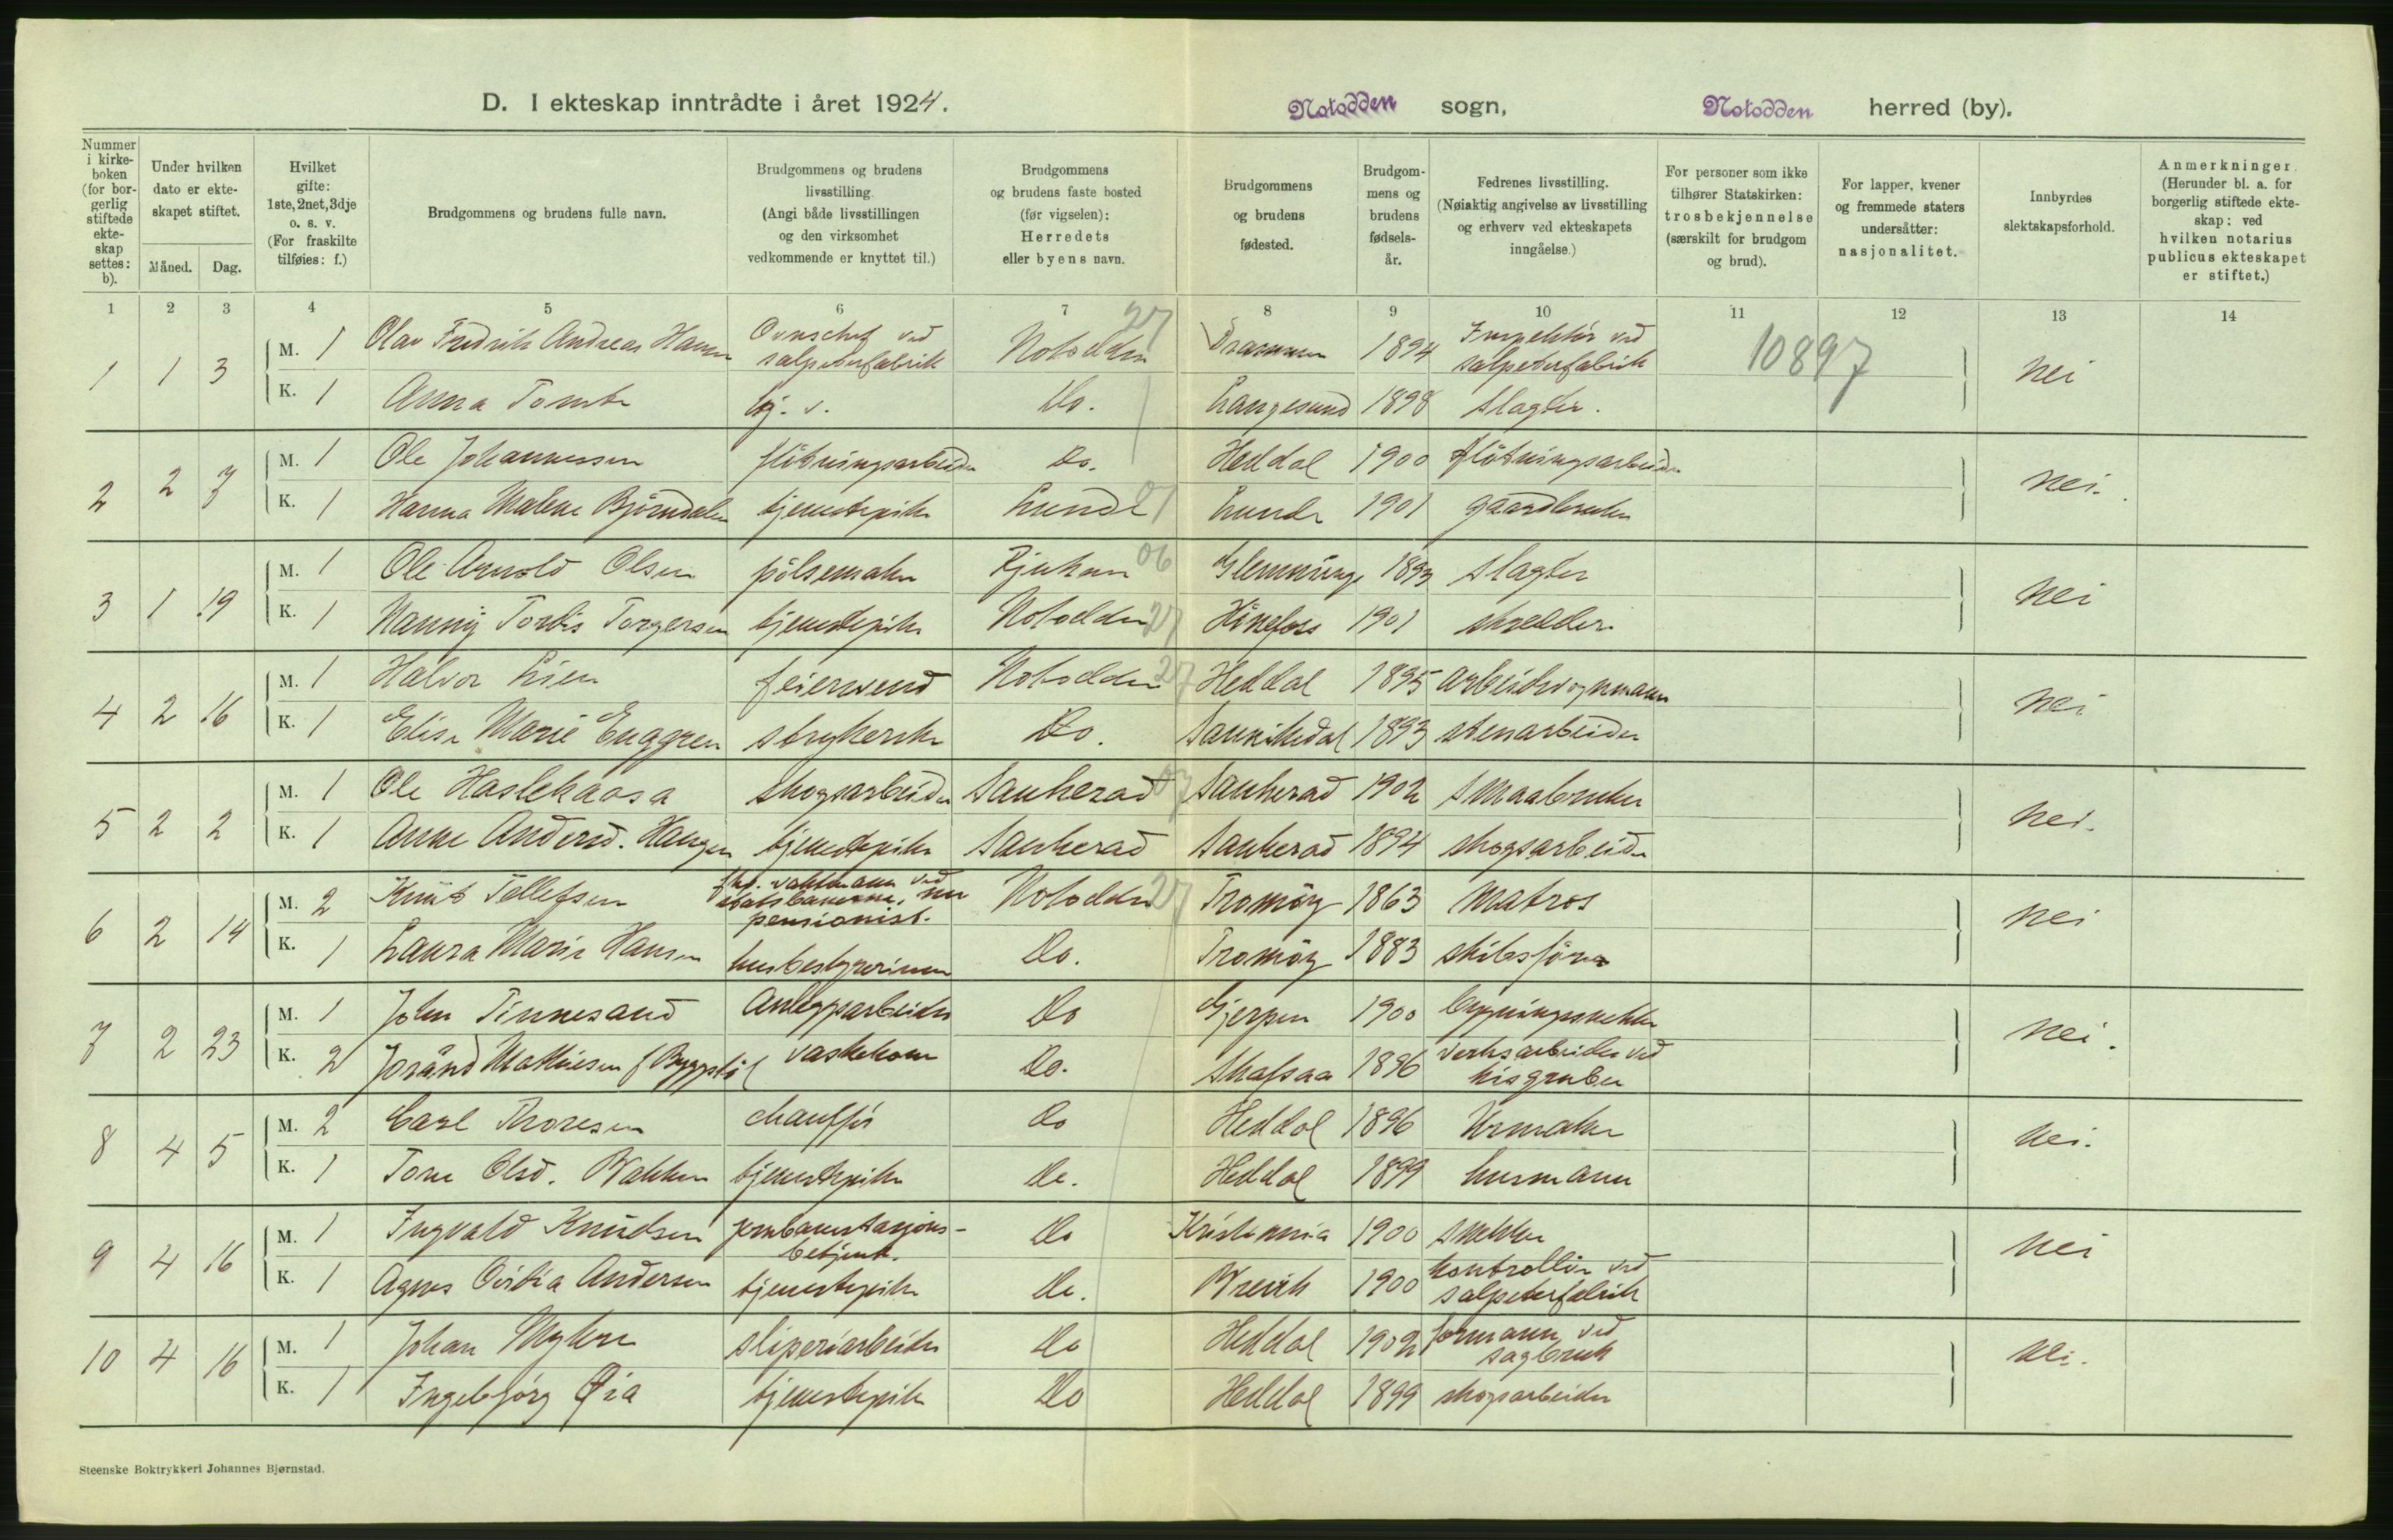 D. I ekteskap inntrådte i året 1924.
Notodden sogn, Notodden herred (by).
Nummer i kirke-boken (for bor-gerlig stiftede ekte-skap settes: b).
Under hvilken dato er ekte-skapet stiftet.
Måned. Dag.
Hvilket gifte: 1ste, 2net, 3dje o. s. v. (For fraskilte tilføies: f.)
Brudgommens og brudens fulle navn.
Brudgommens og brudens livsstilling. (Angi både livsstillingen og den virksomhet vedkommende er knyttet til.)
Brudgommens og brudens faste bosted (før vigselen): Herredets eller byens navn.
Brudgommens og brudens fødested.
Brudgom-mens og brudens fødsels-år.
Fedrenes livsstilling. (Nøiaktig angivelse av livsstilling og erhverv ved ekteskapets inngåelse.)
For personer som ikke tilhører Statskirken: trosbekjennelse (særskilt for brudgom og brud).
For lapper, kvener og fremmede staters undersåtter: nasjonalitet.
Innbyrdes slektskapsforhold.
Anmerkninger. (Herunder bl. a. for borgerlig stiftede ekte-skap: ved hvilken notarius publicus ekteskapet er stiftet.)
1 2 3 4 5 6 7 8 9 10 11 12 13 14
1 1 3 M. 1 Olav Fredrik Andreas Hansen Ovnschef ved salpeterfabrik Notodden 27 Drammen 1894 Inspektör ved salpeterfabrik 10897 nei
K. 1 Anna Tomte Do. Langesund 1898 slagter.
2 2 7 M. 1 Ole Johannessen flötningsarbeider Do. Heddal 1900 flötningsarbeider nei.
K. 1 Hanna Malene Björndalen tjenestepike Lunde 27 Lunde 1901 gaardbruker
3 1 19 M. 1 Ole Arnold Olsen pölsemaker Rjukan 06 Glemminge 1893 slagter nei
K. 1 Nanny Tordis Torgersen tjenestepike Notodden 27 Hönefoss 1901 skredder
4 2 16 M. 1 Halvor Lien feiersvend Notodden 27 Heddal 1895 arbeidsvognmann nei
K. 1 Elise Marie Enggren strykerske Do. Sannikedal 1893 stenarbeider
5 2 2 M. 1 Ole Haslekaasa skogsarbeider Sauherad 07 Sauherad 1902 smaabruker nei.
K. 1 Anne Andersd. Haugen tjenestepike Sauherad Sauherad 1894 skogsarbeider
6 2 14 M. 2 Knut Tellefsen fhv. vaktmann ved statsbanerne, nu pensionist. Notodden 27 Tromöy 1863 Matros nei
K. 1 Laura Marie Hansen husbestyrerinne Do. Tromöy 1883 skibsförer
7 2 23 M. 1 John Tinnesand Anleggsarbeider Do Gjerpen 1900 bygningssnekker nei.
K. 2 Jorånd Mathiesen f Byggstöl vaskekone Do. Skafsaa 1896 verksarbeider ved kisgruber
8 4 5 M. 2 Carl Thoresen chaufför Do Heddal 1896 Urmaker nei.
K. 1 Tone Olsd. Bakken tjenestepike Do. Heddal 1899 husmann
9 4 16 M. 1 Ingvald Knudsen jernbanestasjons-betjent. Do Kristiania 1900 snekker nei
K. 1 Agnes Ovidia Andersen tjenestepike Do. Brevik 1900 kontrollör ved salpeterfabrik
10 4 16 M. 1 Johan Myhre sliperiarbeider Do Heddal 1902 formann ved sagbruk nei.
K. 1 Ingebjörg Öia tjenestepike Do Heddal 1899 skogsarbeider
Steenske Boktrykkeri Johannes Bjørnstad.